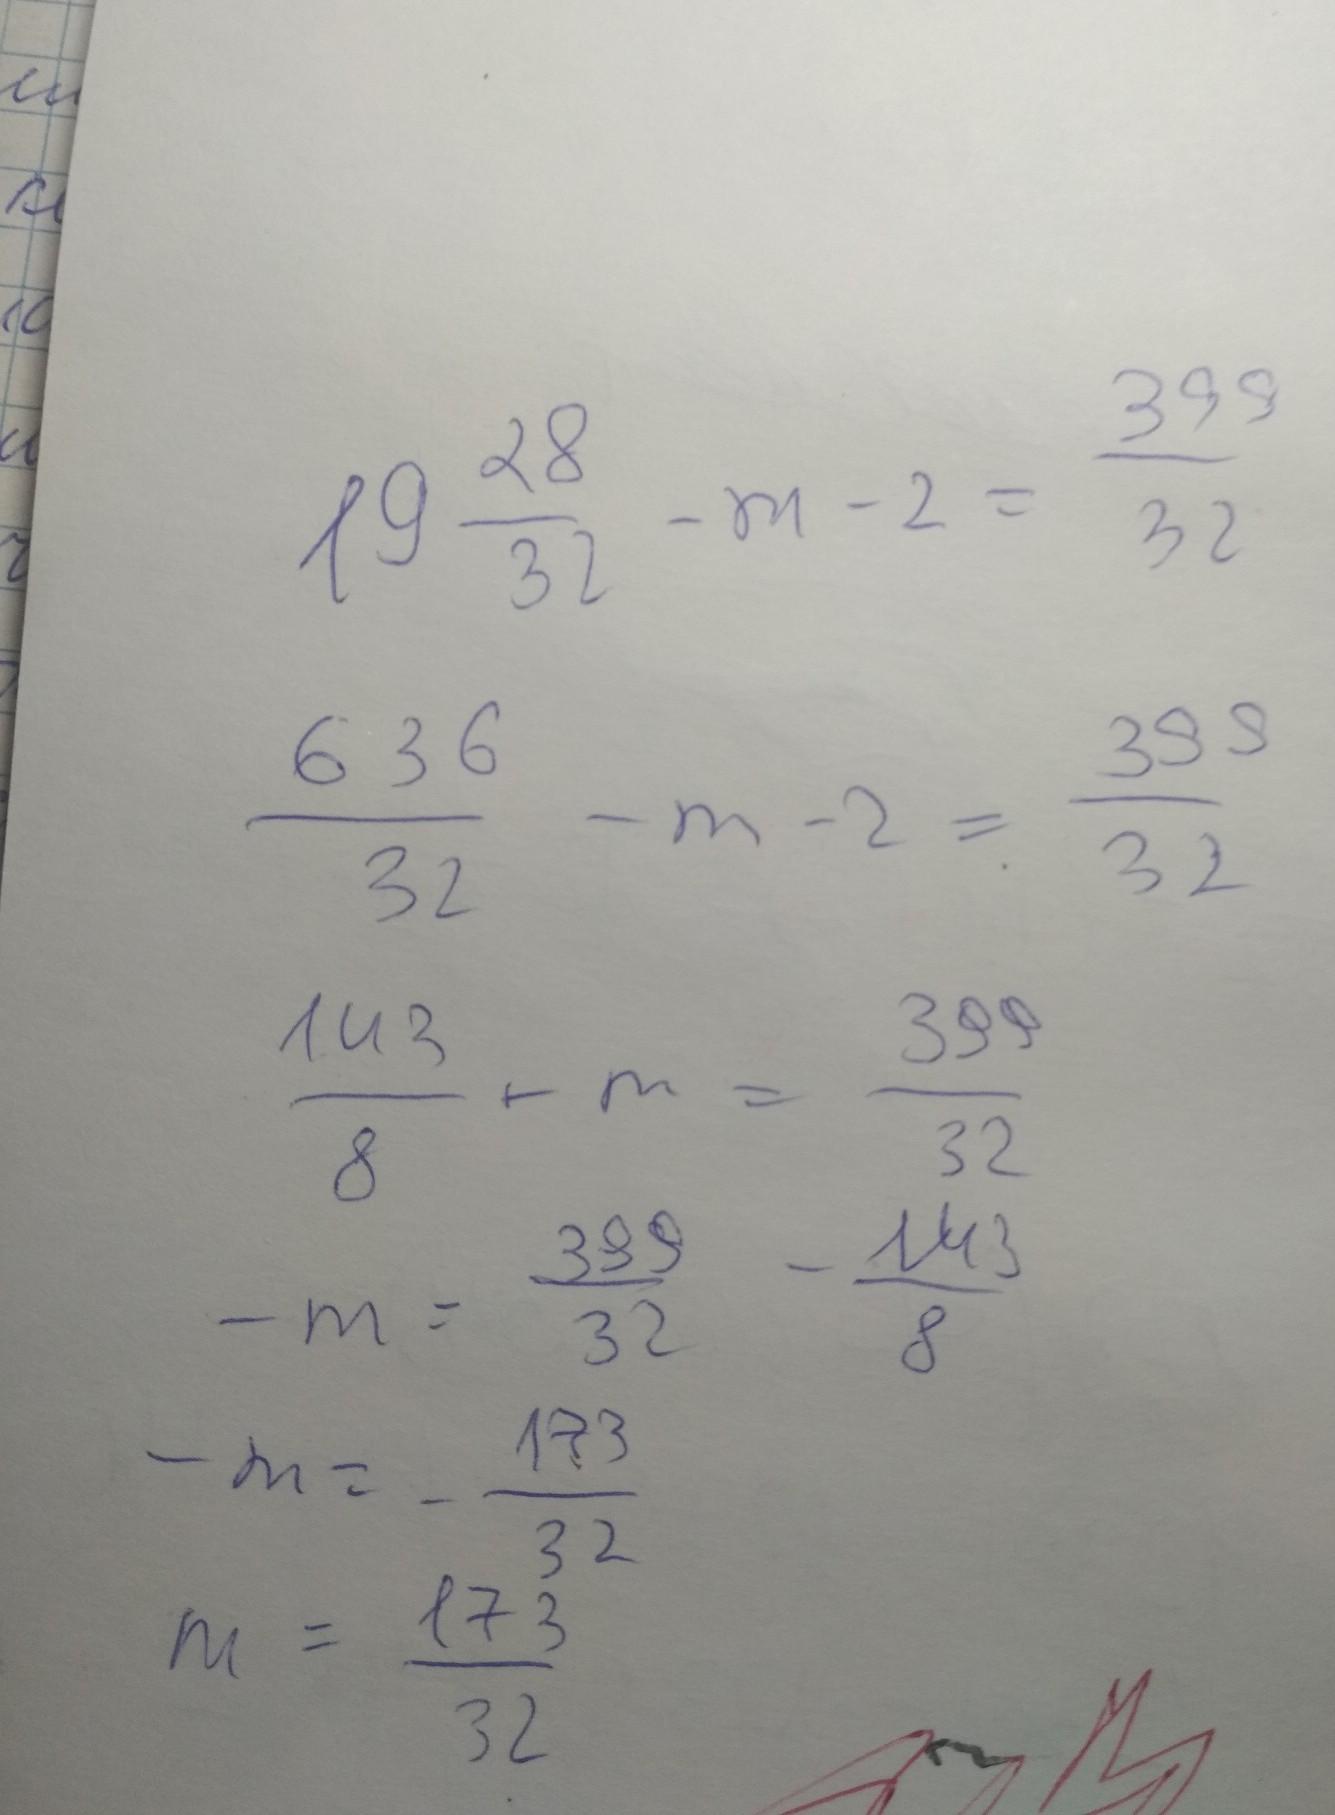 19 28/32 - m - 2 = 399/32
636/32 - m - 2 = 399/32
143/8 - m = 399/32
- m = 399/32 - 143/8
- m = - 173/32
m = 173/32